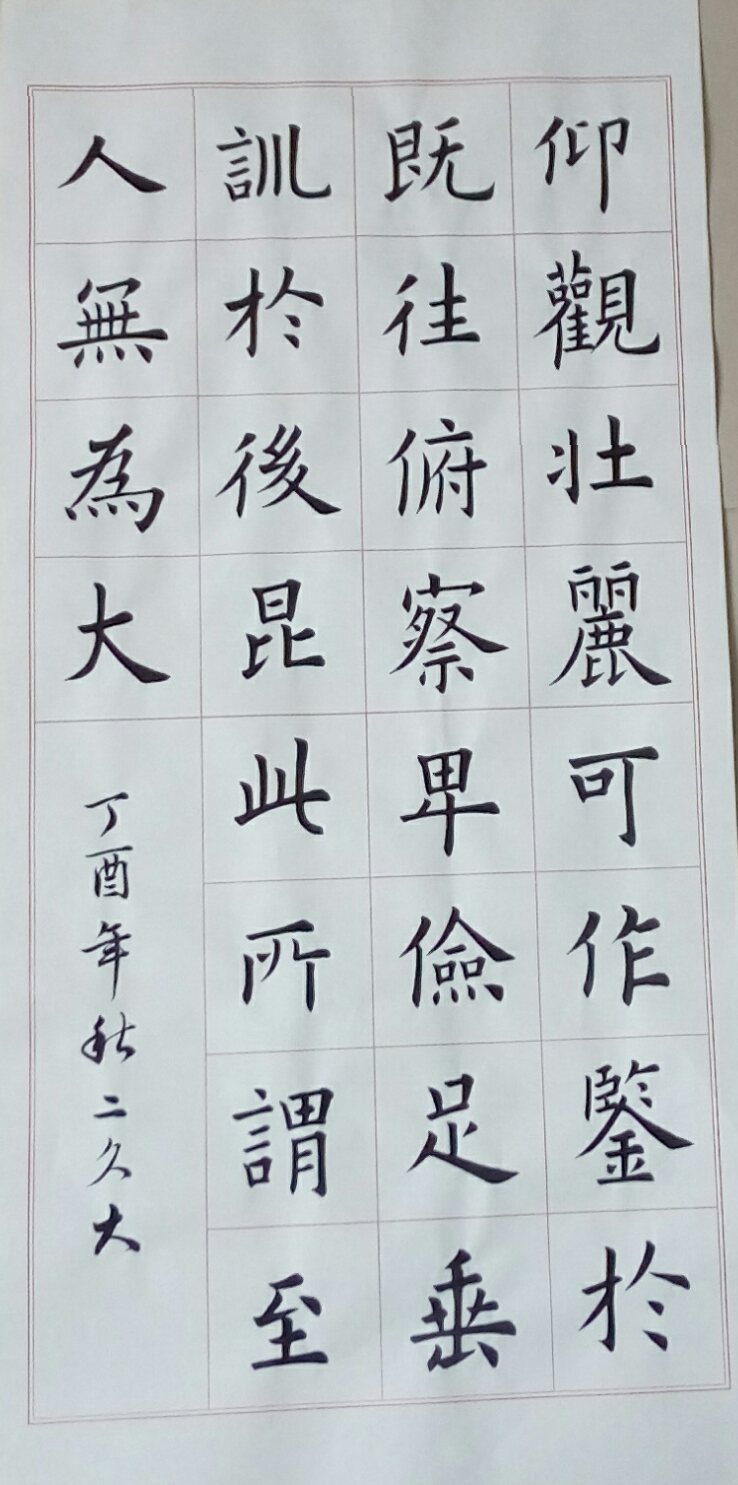 仰觀壯麗可作鑒於
既往俯察卑儉足垂
訓於後昆此所謂至
人無為大
丁酉年秋二久大